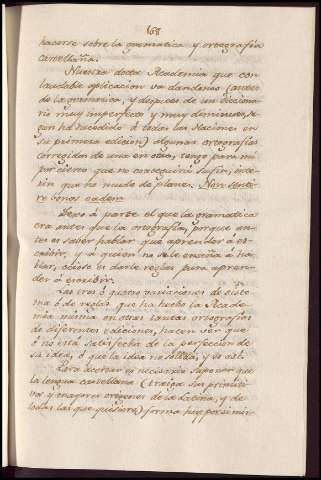 168
hacerse sobre la gramatica y ortografia
castellana.
Nuestra docta Academia que con
laudable aplicacion va dandonos (antes
de la gramatica, y despues de un dicciona-
rio muy imperfecto y muy diminuto, se-
gun há sucedido á todas las Naciones en
su primera edicion) algunas ortografias
corregidas de una en otra, tengo para mi
por cierto que no conseguirá su fin, inte-
rin que no mude de planes. Non sentir
re bonos eadem
Dexo á parte el que la gramatica
era antes que la ortografia, porque an-
tes es saber hablar que aprender á es-
cribir, y á quien no se le enseña á ha-
blar, ocioso es darle reglas para apren-
der á escribir.
Las tres ó quatro variaciones de siste-
ma ó de reglas que ha hecho la Acade-
mia misma en otras tantas ortografias
de diferentes ediciones, hacen ver que
ó no está satisfecha de la perfeccion de
su idea, ó que la idea no es fixa, y se está
Para acertar es necesario suponer que
la lengua castellana (traiga sus primiti-
vos y mayores origenes de la latina, y de
todas las que quisiere) forma hoy por si mis-